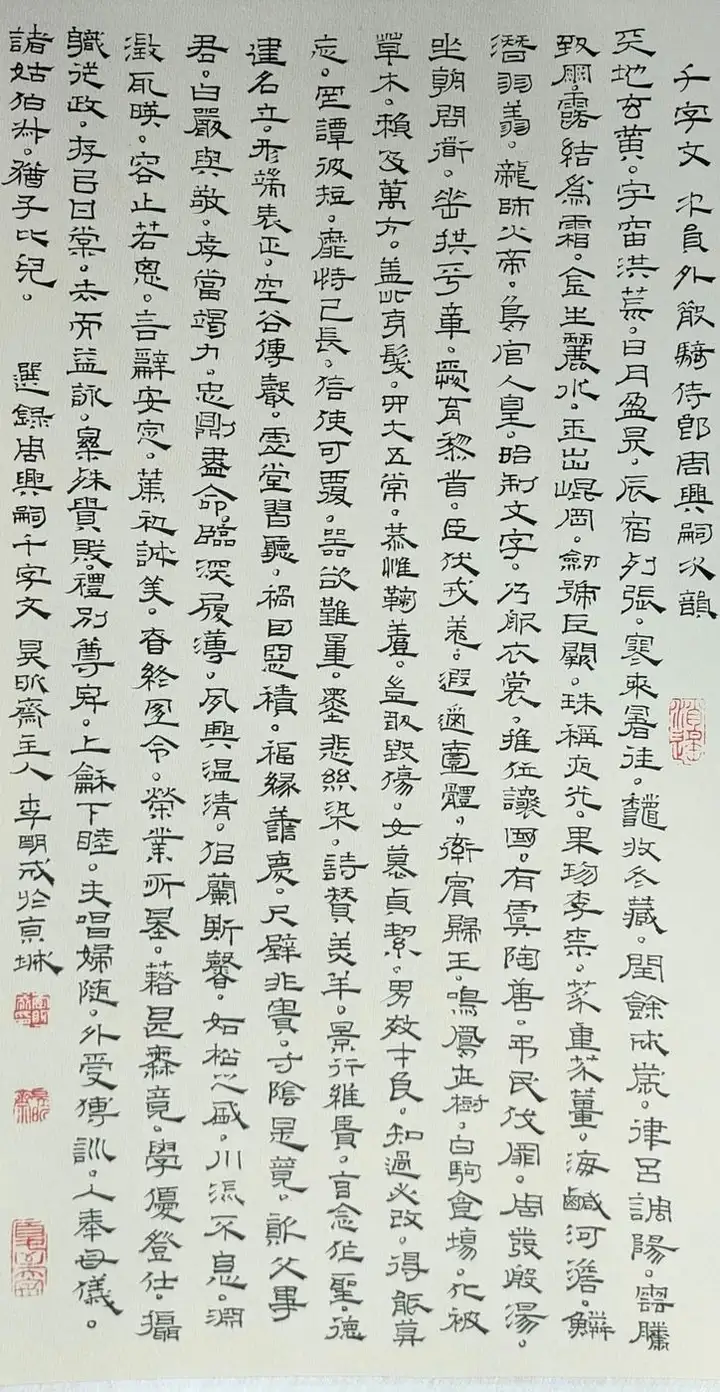 千字文 次員外散騎侍郎周興嗣次韻
天地玄黃。宇宙洪荒。日月盈昃。辰宿列張。寒來暑往。龝收冬藏。閏餘成歲。律呂調陽。雲騰
致雨。露結為霜。金生麗水。玉出崐岡。劒號巨闕。珠稱夜光。果珍李柰。菜重芥薑。海鹹河澹。鱗
潛羽翔。龍師火帝。鳥官人皇。始制文字。乃服衣裳。推位讓國。有虞陶唐。弔民伐罪。周發殷湯。
坐朝問道。垂拱平章。愛育黎首。臣伏戎羌。遐邇壹體。率賓歸王。鳴鳳在樹。白駒食場。化被
草木。賴及萬方。蓋此身髮。四大五常。恭惟鞠養。豈敢毀傷。女慕貞絜。男效才良。知過必改。得能莫
忘。罔譚彼短。靡恃己長。信使可覆。器欲難量。墨悲絲染。詩贊羔羊。景行維賢。克念作聖。德
建名立。形端表正。空谷傳聲。虛堂習聽。禍因惡積。福緣善慶。尺璧非寶。寸陰是競。資父事
君。曰嚴與敬。孝當竭力。忠則盡命。臨深履薄。夙興溫凊。似蘭斯馨。如松之盛。川流不息。淵
澂取暎。容止若思。言辭安定。篤初誠美。昚終宜令。榮業所基。藉甚無竟。學優登仕。攝
職從政。存以甘棠。去而益詠。樂殊貴賤。禮別尊卑。上龢下睦。夫唱婦隨。外受傅訓。入奉母儀。
諸姑伯叔。猶子比兒。 選錄周興嗣千字文 昃昕齋主人 李明成於京城